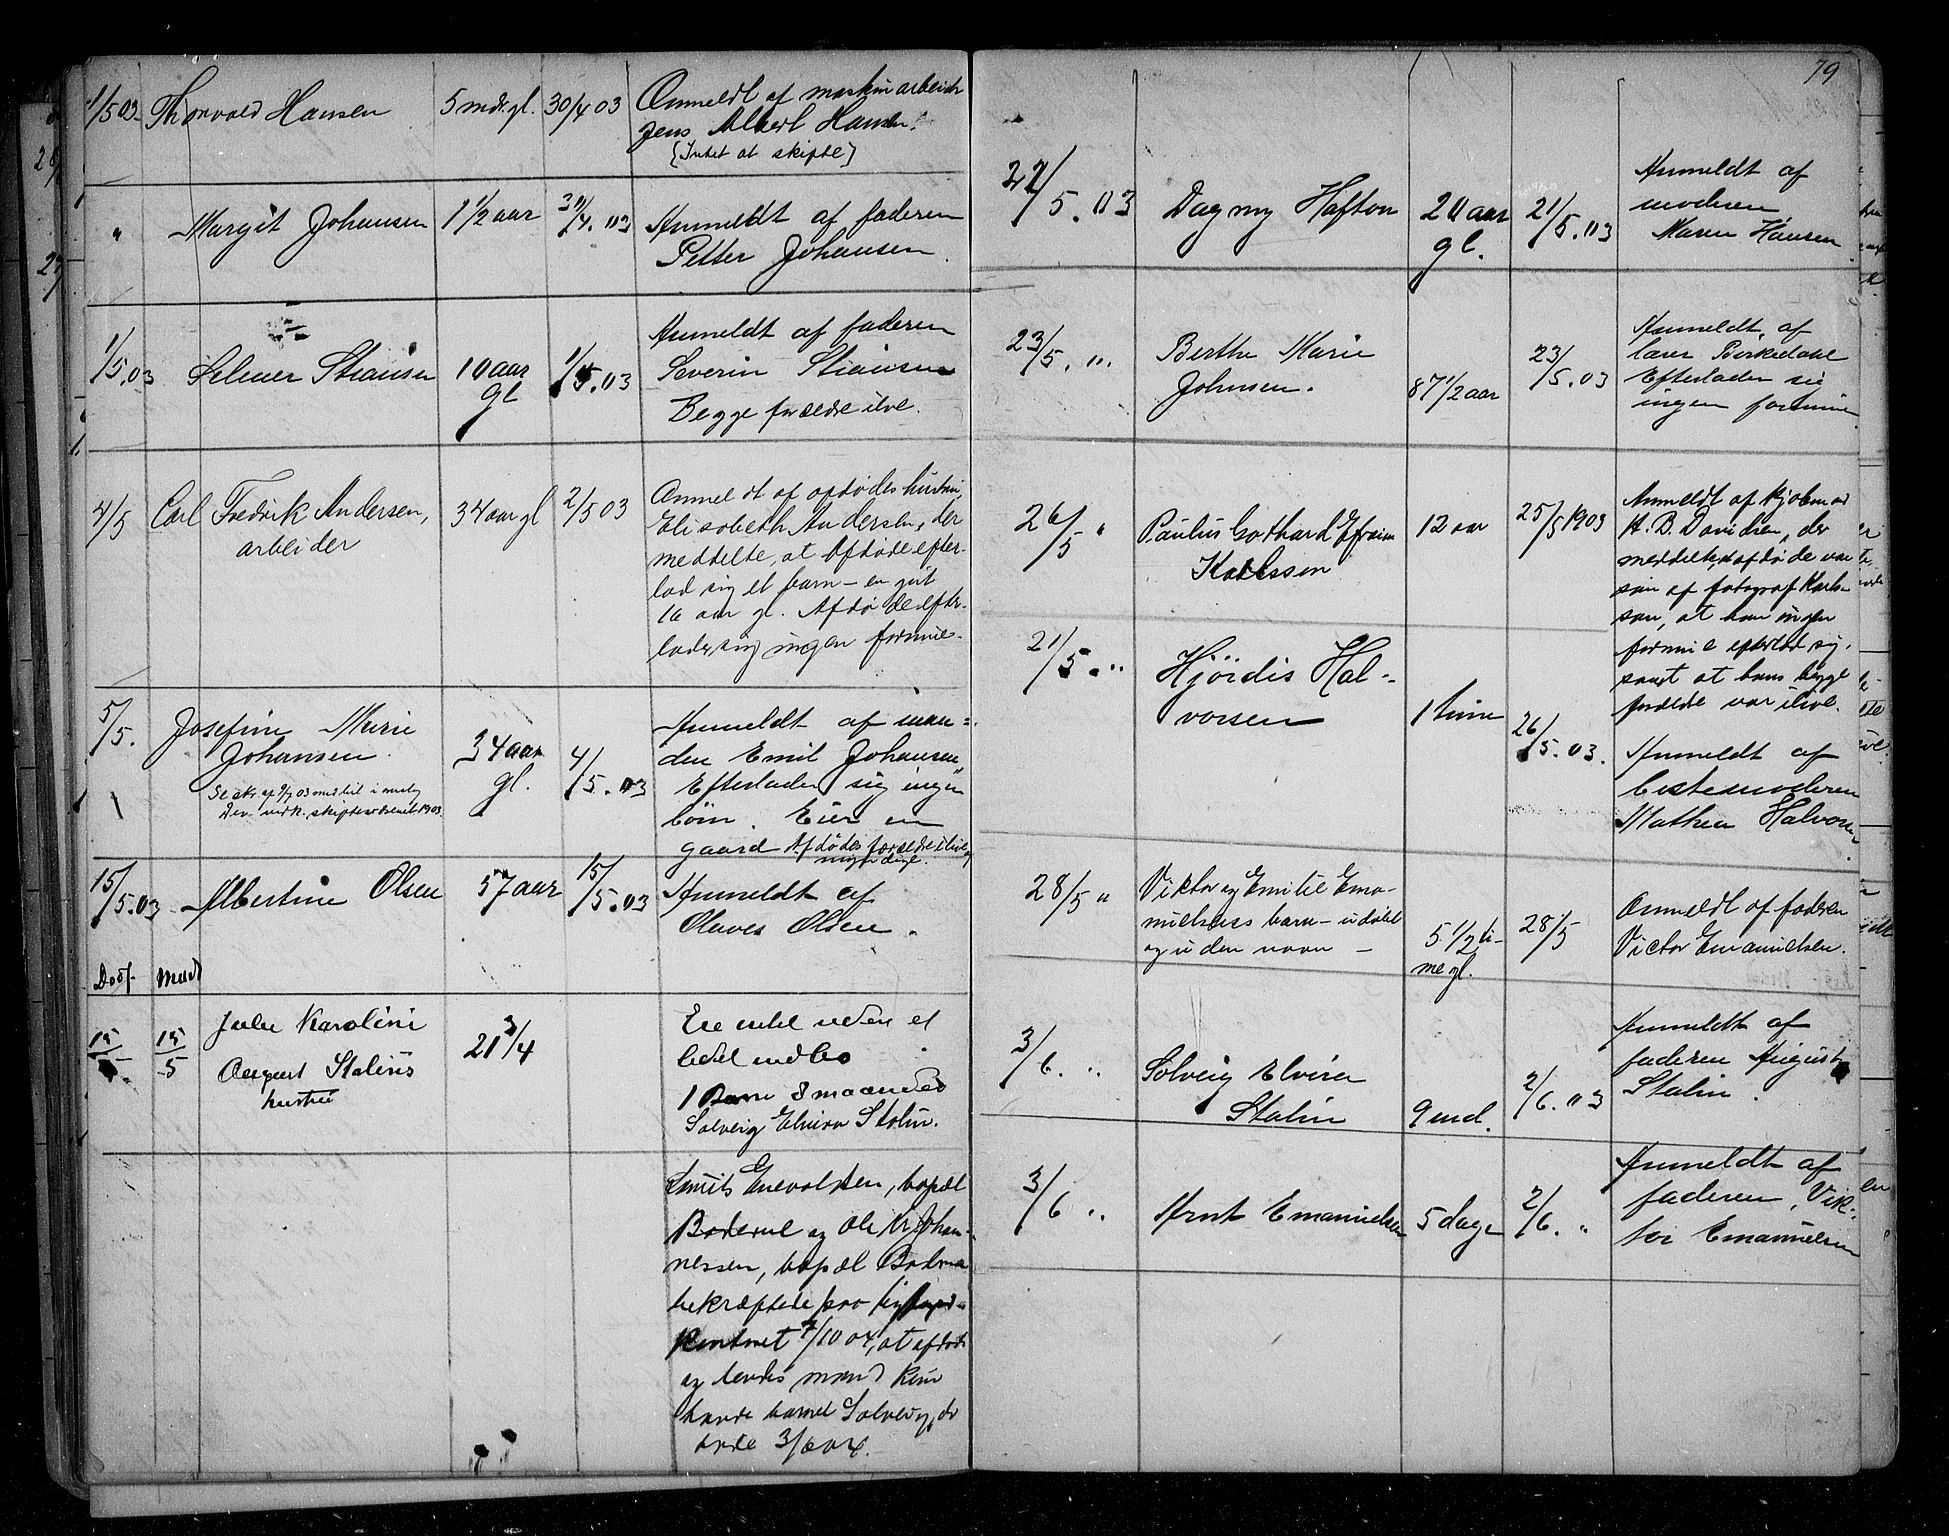 1/5 03. Thorvald Hansen 5 mdr. gl. 30/4 03 Anmeldt af maskinarbeider
Jens Albert Hansen.
(Intet at skifte)
" Margit Johansen 1 1/2 aar 30/4. 03 Anmeldt af faderen
Petter Johansen.
1/5.03 Selmer Stiansen 10 aar gl 1/5.03 Anmeldt af faderen
Severin Stiansen
Begge forældre ilve.
4/5 Carl Fredrik Andersen, 34 aar gl 2/5 03 Anmeldt af afdødes hustru,
arbeider
Elisabeth Andersen, der
meddelte, at Afdøde efter-
lod sig et barn – en gut
16 aar gl. Afdøde efter-
lader sig ingen formue.
5/5. Josefine Marie
Johansen. 34 aar gl. 4/5. 03
Anmeldt af man-
den Emil Johansen,
Efterlader sig ingen
börn. Eier en
gaard Afdødes forældre ilive
myndige.
15/5.03 Albertine Olsen 57 aar 15/5.03 Anmeldt af
Olaves Olsen.
Dødf. Meldt
15/5 15/5 Julie Karoline
August Stalins
hustru
21 3/4
Eie intet uden et
lidet indbo
1 Barn 8 maaneder
Solveig Elvira Stalin.
Enevoldsen, bopæl
og Ole Kr. Johan-
nessen, bopæl
bekræftede paa
Kontoret 7/10 04, at afdøde
og hendes mand kun
havde barnet Solveig, der
døde 3/6 03.
79
22/5. 03 Dagny Hafton 20 aar gl. 21/5. 03
Anmeldt af
moderen
Maren Hansen
23/5. " Berthe Marie
Johnsen. 87 1/2 aar 23/5. 03
Anmeldt af
lærer Birkedahl
Efterlader sig
ingen formue.
26/5 " Paulus Gothard Efraim
Karlsson 12 aar 25/5 1903
Anmeldt af
H. B. Davidsen, der
meddelte at afdøde var
søn af fotograf Karls-
son, at han ingen
formue efterlod sig,
samt at hans begge
forældre var ilive.
21/5. " Hjördis Hal-
vorsen 1 time 26/5. 03.
Anmeldt af
bestemoderen
Mathea Halvorsen.
28/5 " Viktor og Emilie Ema-
nuelsens barn – udøbt
og uden navn – 5 1/2 ti-
me gl. 28/5
Anmeldt af faderen
Victor Emanuelsen.
3/6. " Solveig Elvira
Stalin 9 md. 2/6. 03
Anmeldt af
faderen August
Stalin.
3/6 " Arnt Emanuelsen 5 dage 2/6. "
Anmeldt af
faderen, Vik-
tor Emanuelsen